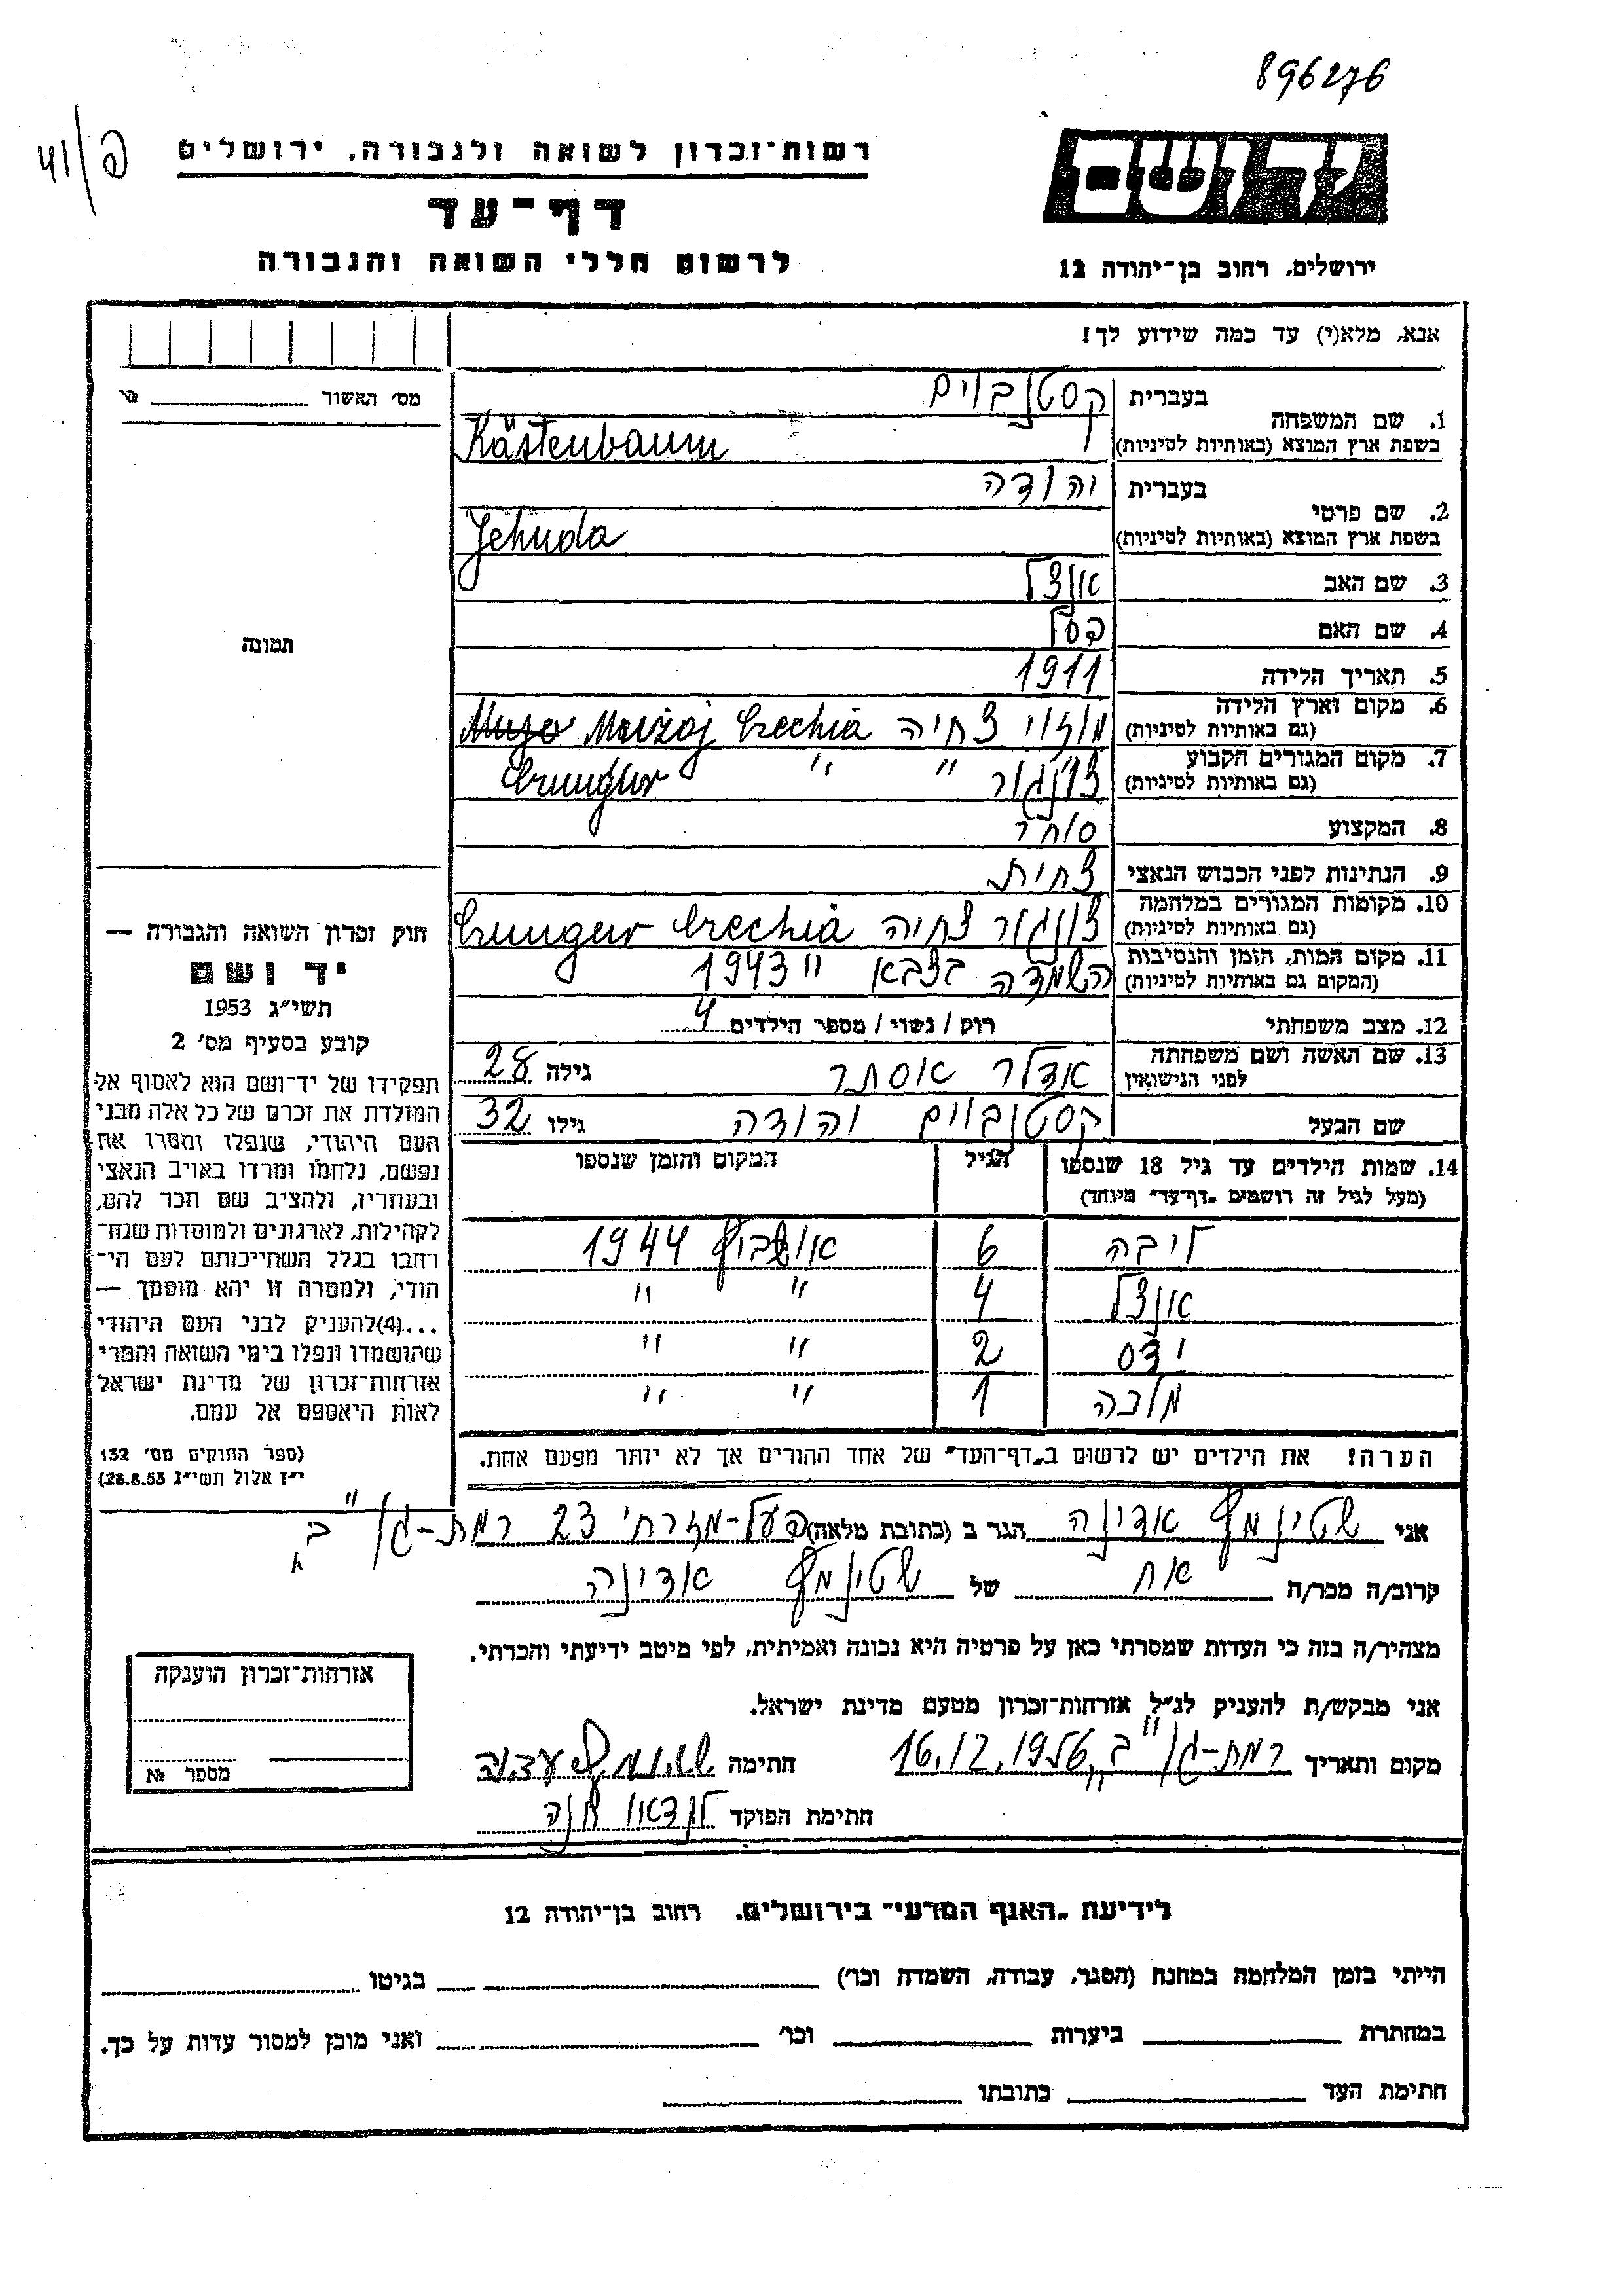 896276
41/פ
רשות-זכרון לשואה ולגבורה, ירושלים
יד ושם
דף-עד
לרשום חללי השואה והגבורה
ירושלים, רחוב בן-יהודה 12
אנא, מלא(י) עד כמה שידוע לך!
מס׳ האשור № 
1. שם המשפחה בעברית קסטנבוים
בשפת ארץ המוצא (באותיות לטיניות) Kästenbaum
2. שם פרטי בעברית יהודה
בשפת ארץ המוצא (באותיות לטיניות) Jehuda
3. שם האב אונצל
4. שם האם
תמונה
5. תאריך הלידה 1911
6. מקום וארץ הלידה
(גם באותיות לטיניות) צ׳חיה Czechia
7. מקום המגורים הקבוע
(גם באותיות לטיניות) " "
8. המקצוע סוחר
9. הנתינות לפני הכבוש הנאצי צ׳חית
10. מקומות המגורים במלחמה
(גם באותיות לטיניות) צ׳ונגור צ׳חיה Czungur Czechia
11. מקום המות, הזמן והנסיבות
(המקום גם באותיות לטיניות) השמדה בצבא 1943
12. מצב משפחתי רוק / נשוי / מספר הילדים 4
13. שם האשה ושם משפחתה
לפני הנישואין אדלר אסתר גילה 28
שם הבעל קסטנבוים יהודה גילו 32
14. שמות הילדים עד גיל 18 שנספו הגיל המקום והזמן שנספו
(מעל לגיל זה רושמים „דף-עד" מיוחד)
ליבה 6 אושביץ 1944
אונצל 4 " "
2 " "
מלכה 1 " "
הערה! את הילדים יש לרשום ב„דף-העד" של אחד ההורים אך לא יותר מפעם אחת.
חוק זכרון השואה והגבורה —
יד ושם
תשי״ג 1953
קובע בסעיף מס׳ 2
תפקידו של יד-ושם הוא לאסוף אל
המולדת את זכרם של כל אלה מבני
העם היהודי, שנפלו ומסרו את
נפשם, נלחמו ומרדו באויב הנאצי
ובעוזריו, ולהציב שם וזכר להם,
לקהילות, לארגונים ולמוסדות שנח-
רבו בגלל השתייכותם לעם הי-
הודי, ולמטרה זו יהא מוסמך —
...(4)להעניק לבני העם היהודי
שהושמדו ונפלו בימי השואה והמרי
אזרחות-זכרון של מדינת ישראל
לאות היאספם אל עמם.
(ספר החוקים מס׳ 132
י״ז אלול תשי״ג 28.8.53)
אני שטינמץ אדינה הגר ב (כתובת מלאה) פעל-מזרחי 23 רמת-גן ב׳
קרוב/ה מכר/ה אח של שטינמץ אדינה
מצהיר/ה בזה כי העדות שמסרתי כאן על פרטיה היא נכונה ואמיתית, לפי מיטב ידיעתי והכרתי.
אני מבקש/ת להעניק לנ״ל אזרחות-זכרון מטעם מדינת ישראל.
מקום ותאריך רמת-גן ב׳, 16.12.1956 חתימה
חתימת הפוקד לנדאו חנה
אזרחות-זכרון הוענקה
מספר №
לידיעת „האגף המדעי" בירושלים. רחוב בן-יהודה 12
הייתי בזמן המלחמה במחנה (הסגר, עבודה, השמדה וכו׳) בגיטו
במחתרת ביערות וכו׳ ואני מוכן למסור עדות על כך.
חתימת העד כתובתו